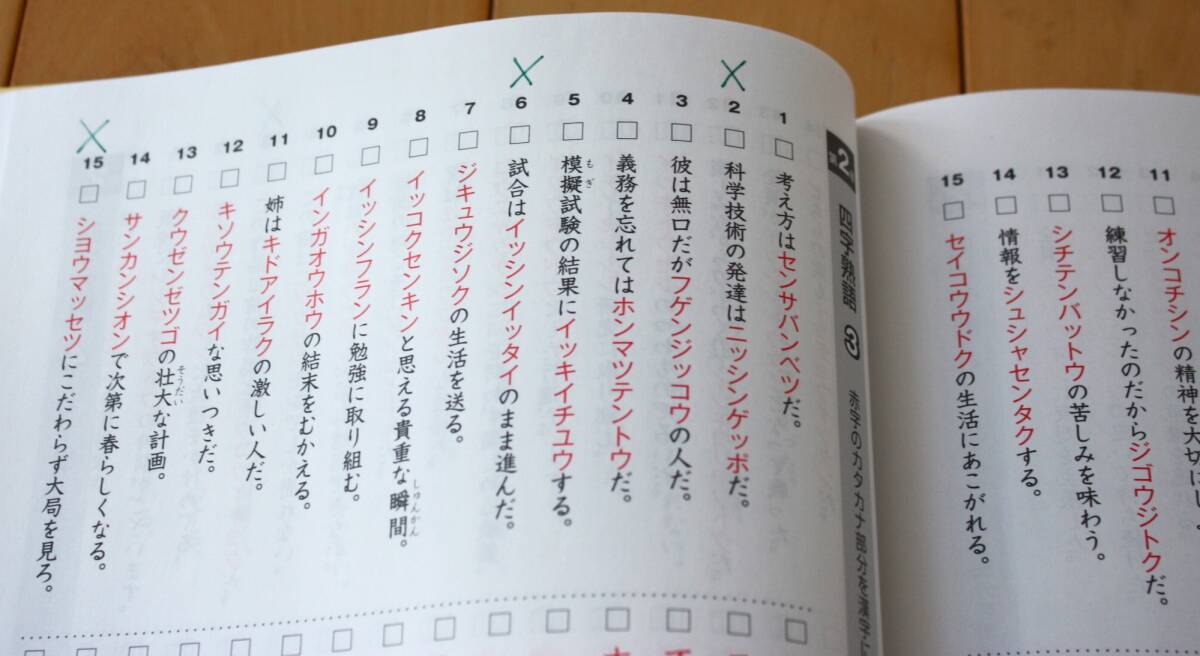 11 オンコチシンの精神を大切に
12 練習しなかったのだからジゴウジトクだ。
13 シチテンバットウの苦しみを味わう。
14 情報をシュシャセンタクする。
15 セイコウウドクの生活にあこがれる。
2 四字熟語 ③ 赤字のカタカナ部分を漢字に
1 考え方はセンサバンベツだ。
2 科学技術の発達はニッシンゲッポだ。
3 彼は無口だがフゲンジッコウの人だ。
4 義務を忘れてはホンマツテントウだ。
もぎ
5 模擬試験の結果にイッキイチユウする。
6 試合はイッシンイッタイのまま進んだ。
7 ジキュウジソクの生活を送る。
しゅんかん
8 イッコクセンキンと思える貴重な瞬間。
9 イッシンフランに勉強に取り組む。
10 インガオウホウの結末をむかえる。
11 姉はキドアイラクの激しい人だ。
12 キソウテンガイな思いつきだ。
そうだい
13 クウゼンゼツゴの壮大な計画。
14 サンカンシオンで次第に春らしくなる。
15 シヨウマッセツにこだわらず大局を見ろ。